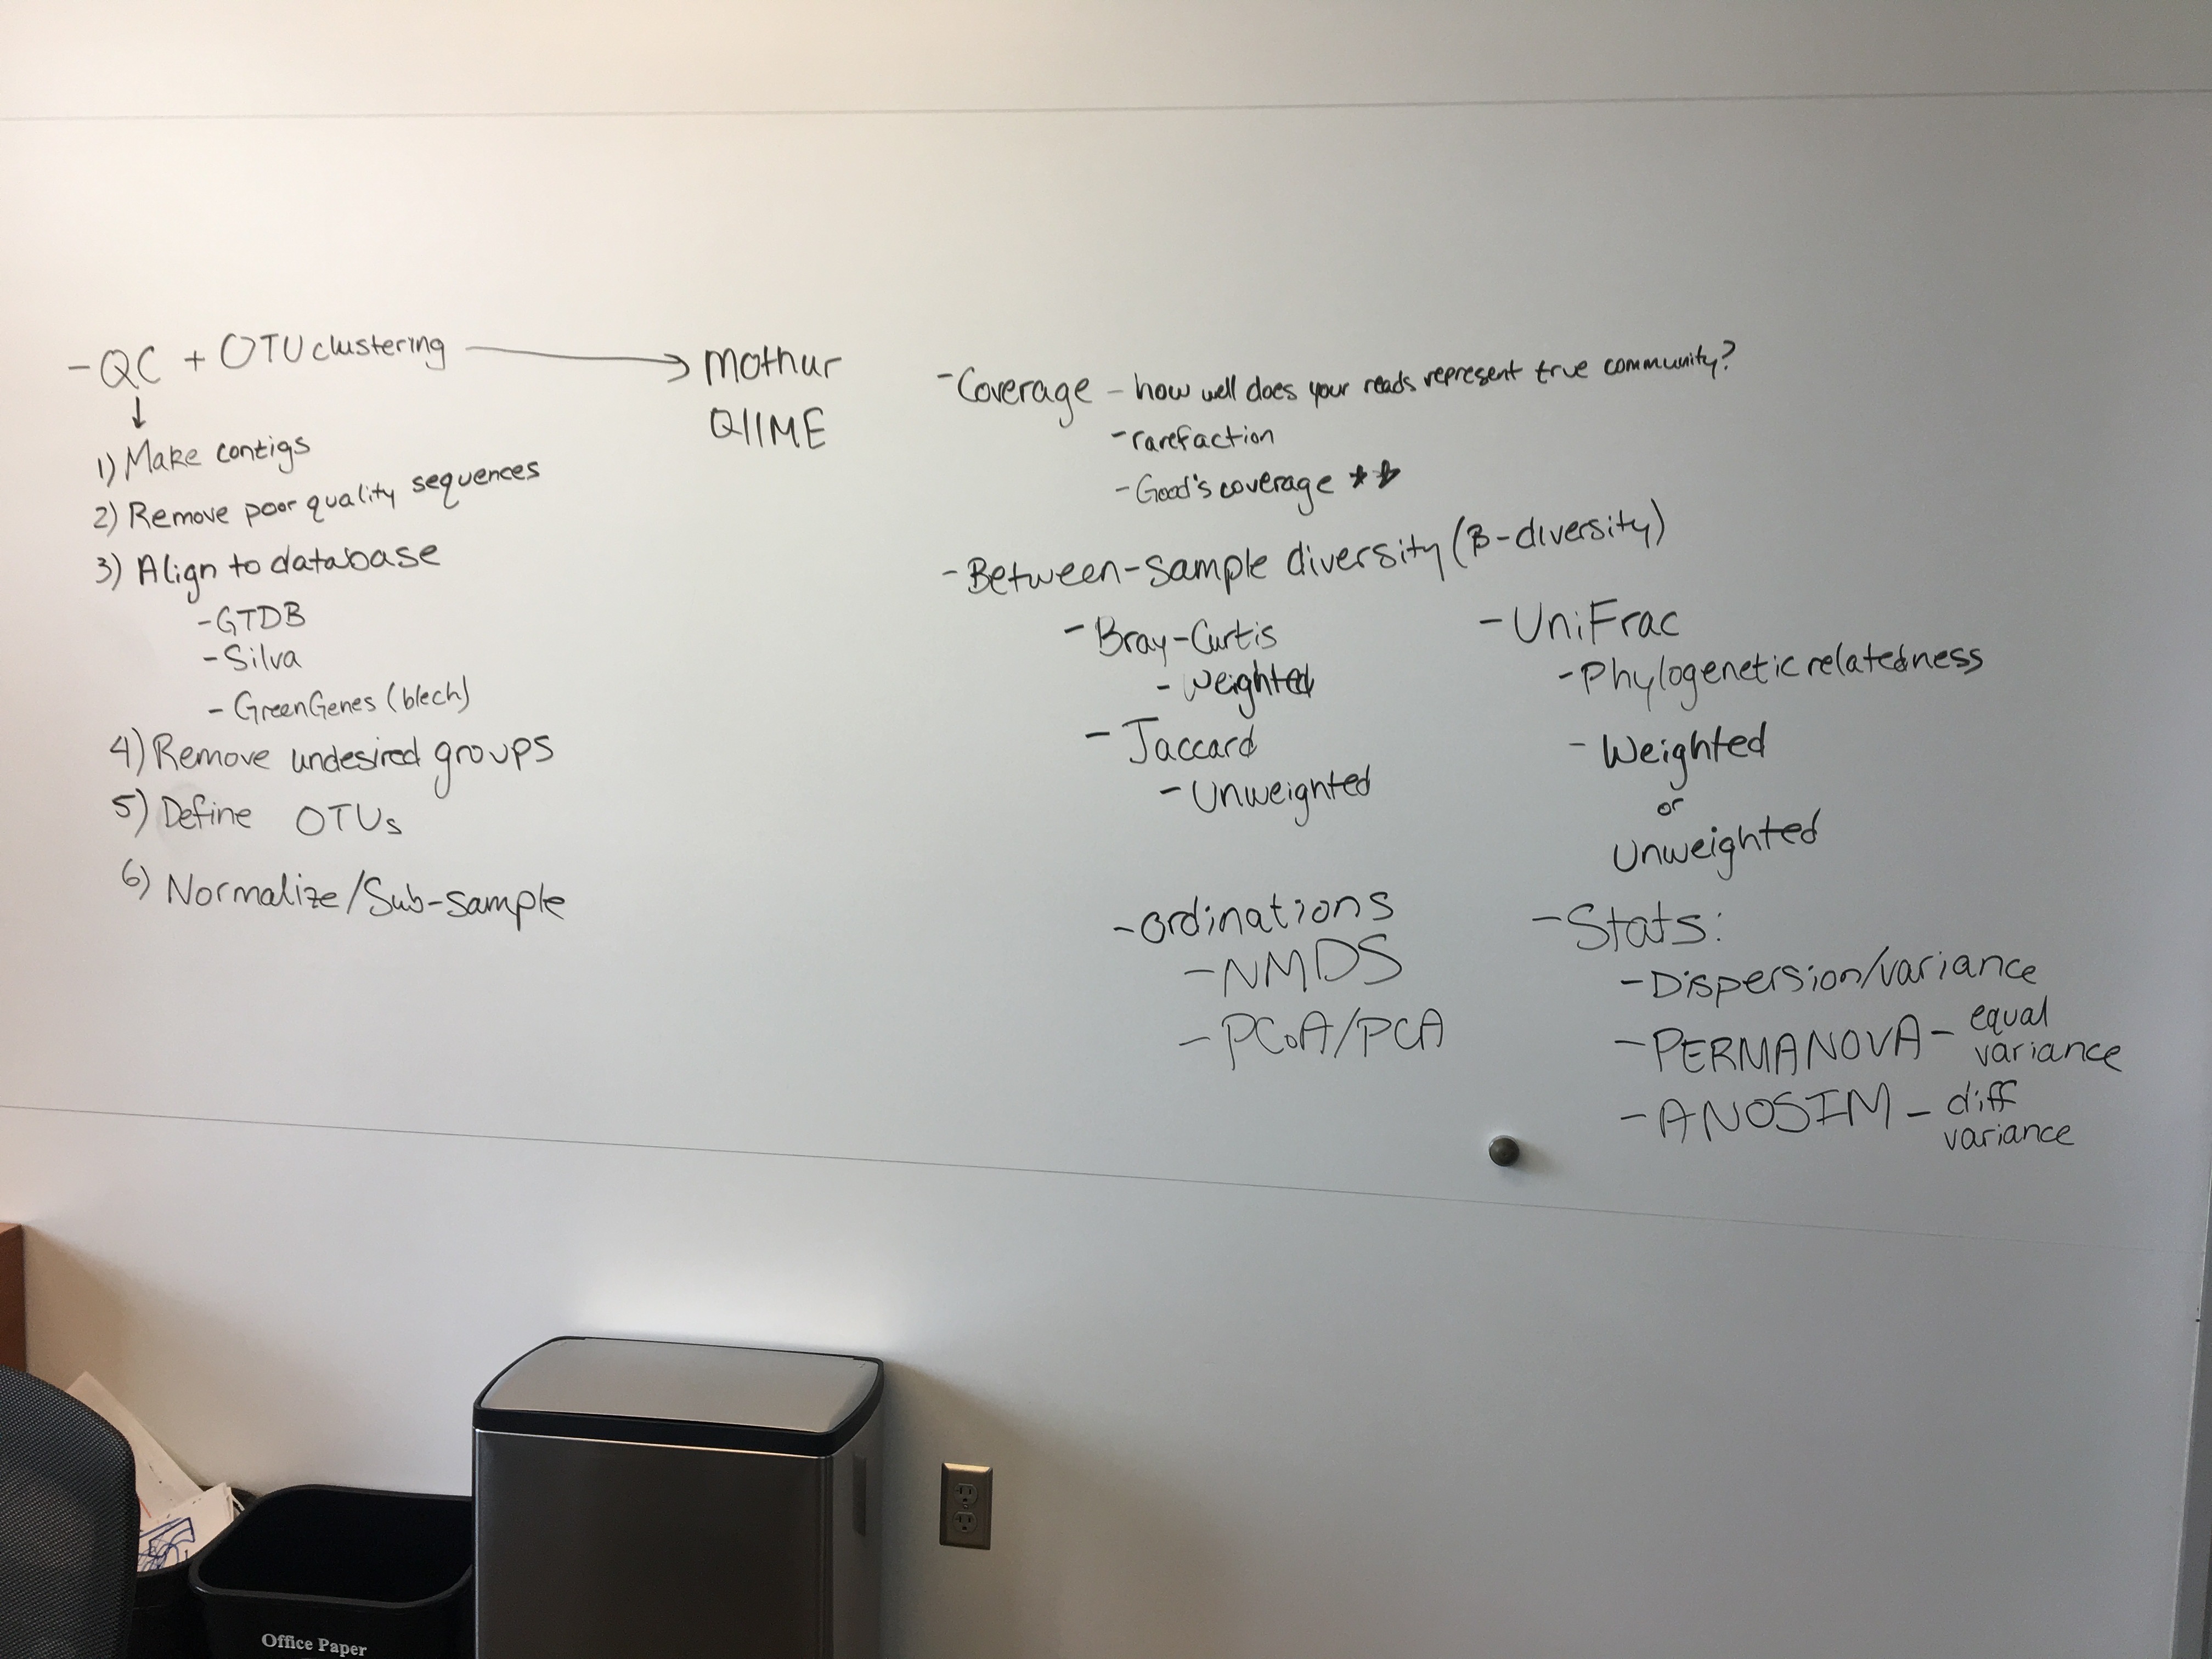 - QC + OTU clustering → mothur
QIIME
↓
1) Make contigs
2) Remove poor quality sequences
3) Align to database
- GTDB
- Silva
- GreenGenes (blech)
4) Remove undesired groups
5) Define OTUs
6) Normalize/Sub-sample
- Coverage - how well does your reads represent true community?
- rarefaction
- Good's coverage **
- Between-Sample diversity (β-diversity)
- Bray-Curtis
- Weighted
- Jaccard
- Unweighted
- UniFrac
- Phylogenetic relatedness
- Weighted
or
Unweighted
- ordinations
- NMDS
- PCoA/PCA
- Stats:
- Dispersion/variance
- PERMANOVA - equal
variance
- ANOSIM - diff
variance
Office Paper